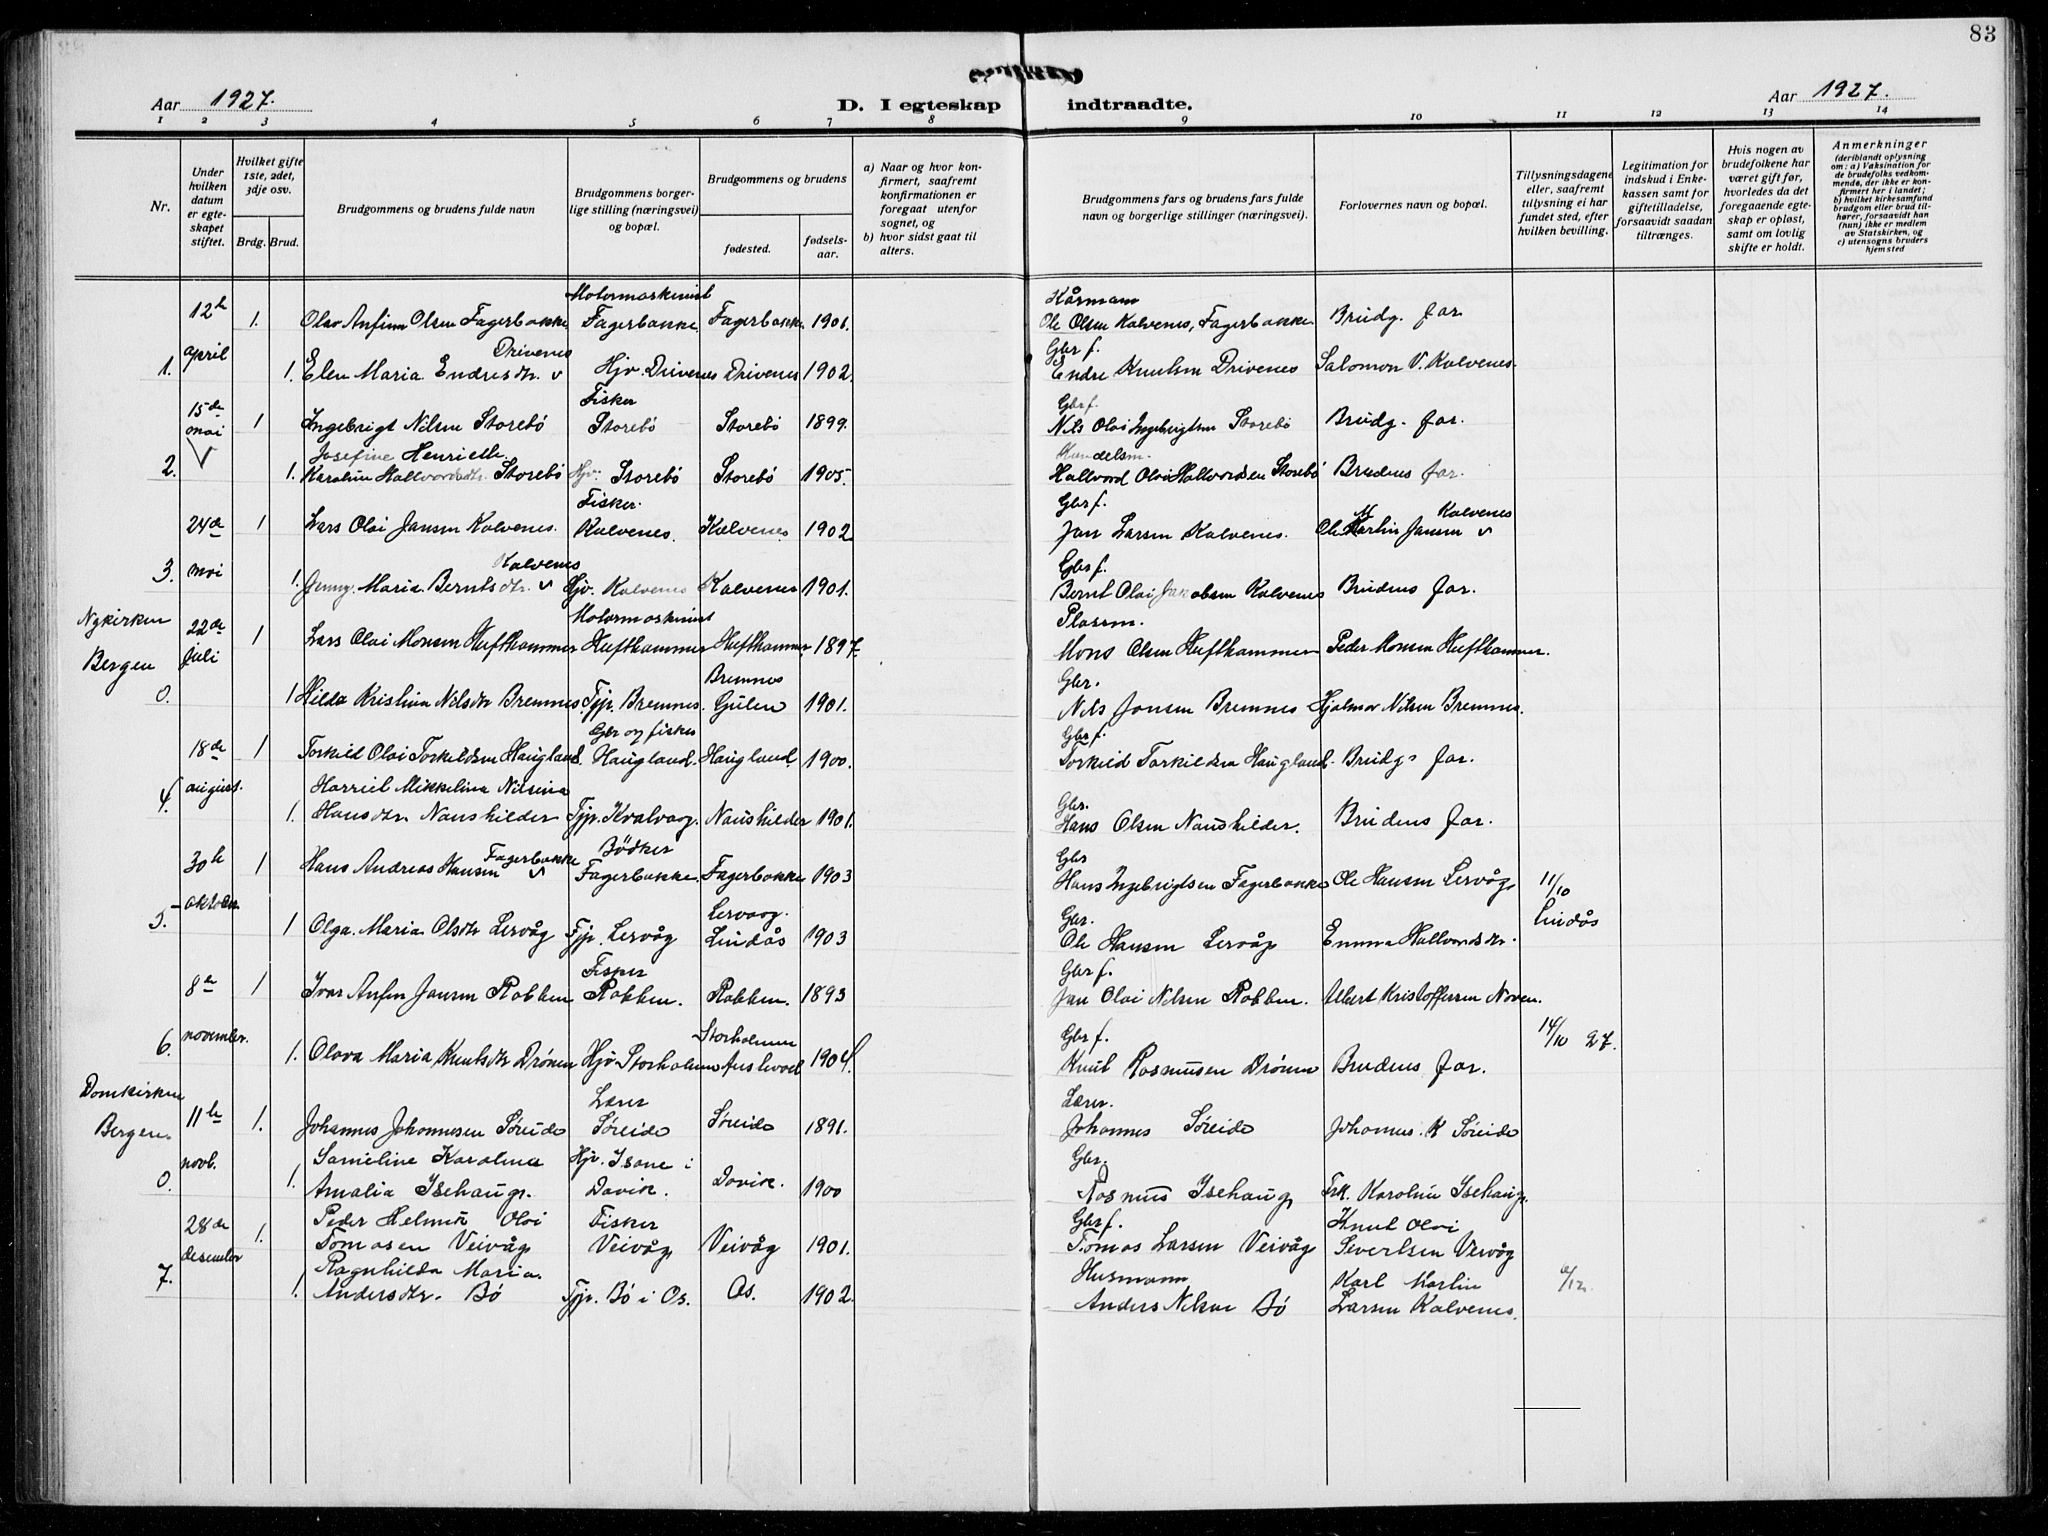 83
Aar 1927.
D. I egteskap indtraadte.
Aar 1927.
1 2 3 4 5 6 7 8 9 10 11 12 13 14
Nr.
Under hvilken datum er egteskapet stiftet.
Hvilket gifte 1ste, 2det, 3dje osv.
Brdg. Brud.
Brudgommens og brudens fulde navn
Brudgommens borgerlige stilling (næringsvei) og bopæl.
Brudgommens og brudens
fødested.
fødselsaar.
a) Naar og hvor konfirmert, saafremt konfirmationen er foregaat utenfor sognet, og
b) hvor sidst gaat til alters.
Brudgommens fars og brudens fars fulde navn og borgerlige stillinger (næringsvei).
Forlovernes navn og bopæl.
Tillysningsdagene eller, saafremt tillysning ei har fundet sted, efter hvilken bevilling.
Legitimation for indskud i Enkekassen samt for giftetilladelse, forsaavidt saadan tiltrænges.
Hvis nogen av brudefolkene har været gift før, hvorledes da det foregaaende egteskap er opløst, samt om lovlig skifte er holdt.
Anmerkninger
(deriblandt oplysning om: a) Vaksination for de brudefolks vedkommende, der ikke er konfirmert her i landet; b) hvilket kirkesamfund brudgom eller brud tilhører, forsaavidt han (hun) ikke er medlem av Statskirken, og c) utensogns bruders hjemsted
Motormaskinist Kårmann
12te 1. Olav Anfinn Olsen Fagerbakke Fagerbakke Fagerbakke 1901. Ole Olsen Kalvenes, Fagerbakke Brudg. far
april Drivenes Gbr f.
1. 1. Elen Maria Endresdtr. v Hjv. Drivenes Drivenes 1902. Endre Knutsen Drivenes Salomon V. Kalvenes.
15de Fisker Gbr f.
mai 1 Ingebrigt Nilsen Storebö Storebö Storebö 1899. Nils Olai Ingebrigtsen Storebö Brudg. far.
V Josefine Henriette Handelsm.
2. 1. Karoline Hallvardsdtr. Storebö Hjv. Storebö Storebö 1905. Hallvard Olai Hallvardsen Storebö Brudens far.
Fisker. Gbr f. Kalvenes
24de 1 Lars Olai Jansen Kalvenes. Kalvenes. Kalvenes 1902 Jan Larsen Kalvenes. Ole Martin Jansen v
mai Kalvenes Gbr f.
3. 1. Jenny Maria Berntsdtr. v Hjv. Kalvenes Kalvenes 1901. Bernt Olai Jakobsen Kalvenes Brudens far.
Nykirken Motormaskinist Plassm.
22de 1 Lars Olai Monsen Hufthammer Hufthammer Hufthammer 1897. Mons Olsen Hufthammer Peder Monsen Hufthammer.
Bergen juli Bremnes Gbr.
0. 1 Hilda Kristina Nilsdtr Bremnes Tjp. Bremnes. Gulen 1901. Nils Jansen Bremnes Hjalmar Nilsen Bremnes.
Gbr og fisker Gbr f.
18de 1 Torkild Olai Torkildsen Haugland. Haugland. Haugland. 1900. Torkild Torkildsen Haugland. Brudgs far.
august. Harriet Mikkelina Nilsina Gbr.
4. 1. Hansdtr. Naushilder Tjp. Kvalvaag. Naushilder 1901. Hans Olsen Naushilder. Brudens far.
Fagerbakke Bödker Gbr
30te 1 Hans Andreas Hansen v Fagerbakke. Fagerbakke 1903 Hans Ingebrigtsen Fagerbakke Ole Hansen Lervåg 11/10
oktober Lervaag. Gbr. Lindås
5. 1 Olga Maria Olsdtr Lervåg Tjp. Lervåg Lindås 1903 Ole Hansen Lervåg Emma Hallvardsdtr.
Fisker Gbr f.
8de 1 Ivar Anfin Jansen Rabben Rabben. Rabben. 1893 Jan Olai Nilsen Rabben. Albert Kristoffersen Noven.
november. Storholmen Gbr f. 14/10 27.
6. 1. Olava Maria Knutsdtr Drönen Hjv Storholmen Austevoll 1904. Knut Rasmussen Drönen Brudens far.
Domkirken Lærer Lærer.
Bergen. 11te 1. Johannes Johannesen Söreide Söreide Söreide 1891. Johannes Söreide Johannes K Söreide
novb. Sameline Karolina Hjv. Isane i Gbr.
0. 1. Amalia Isehaug. Davik. Davik. 1900 Rasmus Isehaug Frk. Karoline Isehaug.
28de Peder Helmik Olai Fisker Gbr f. Knut Olai
desember 1. Tomasen Veivåg Veivåg Veivåg 1901. Tomas Larsen Veivåg Sivertsen Veivåg
Ragnhilda Maria Husmann Karl Martin
7. 1. Andersdtr. Bö Tjp. Bö i Os. Os. 1902. Anders Nilsen Bö Larsen Kalvenes.